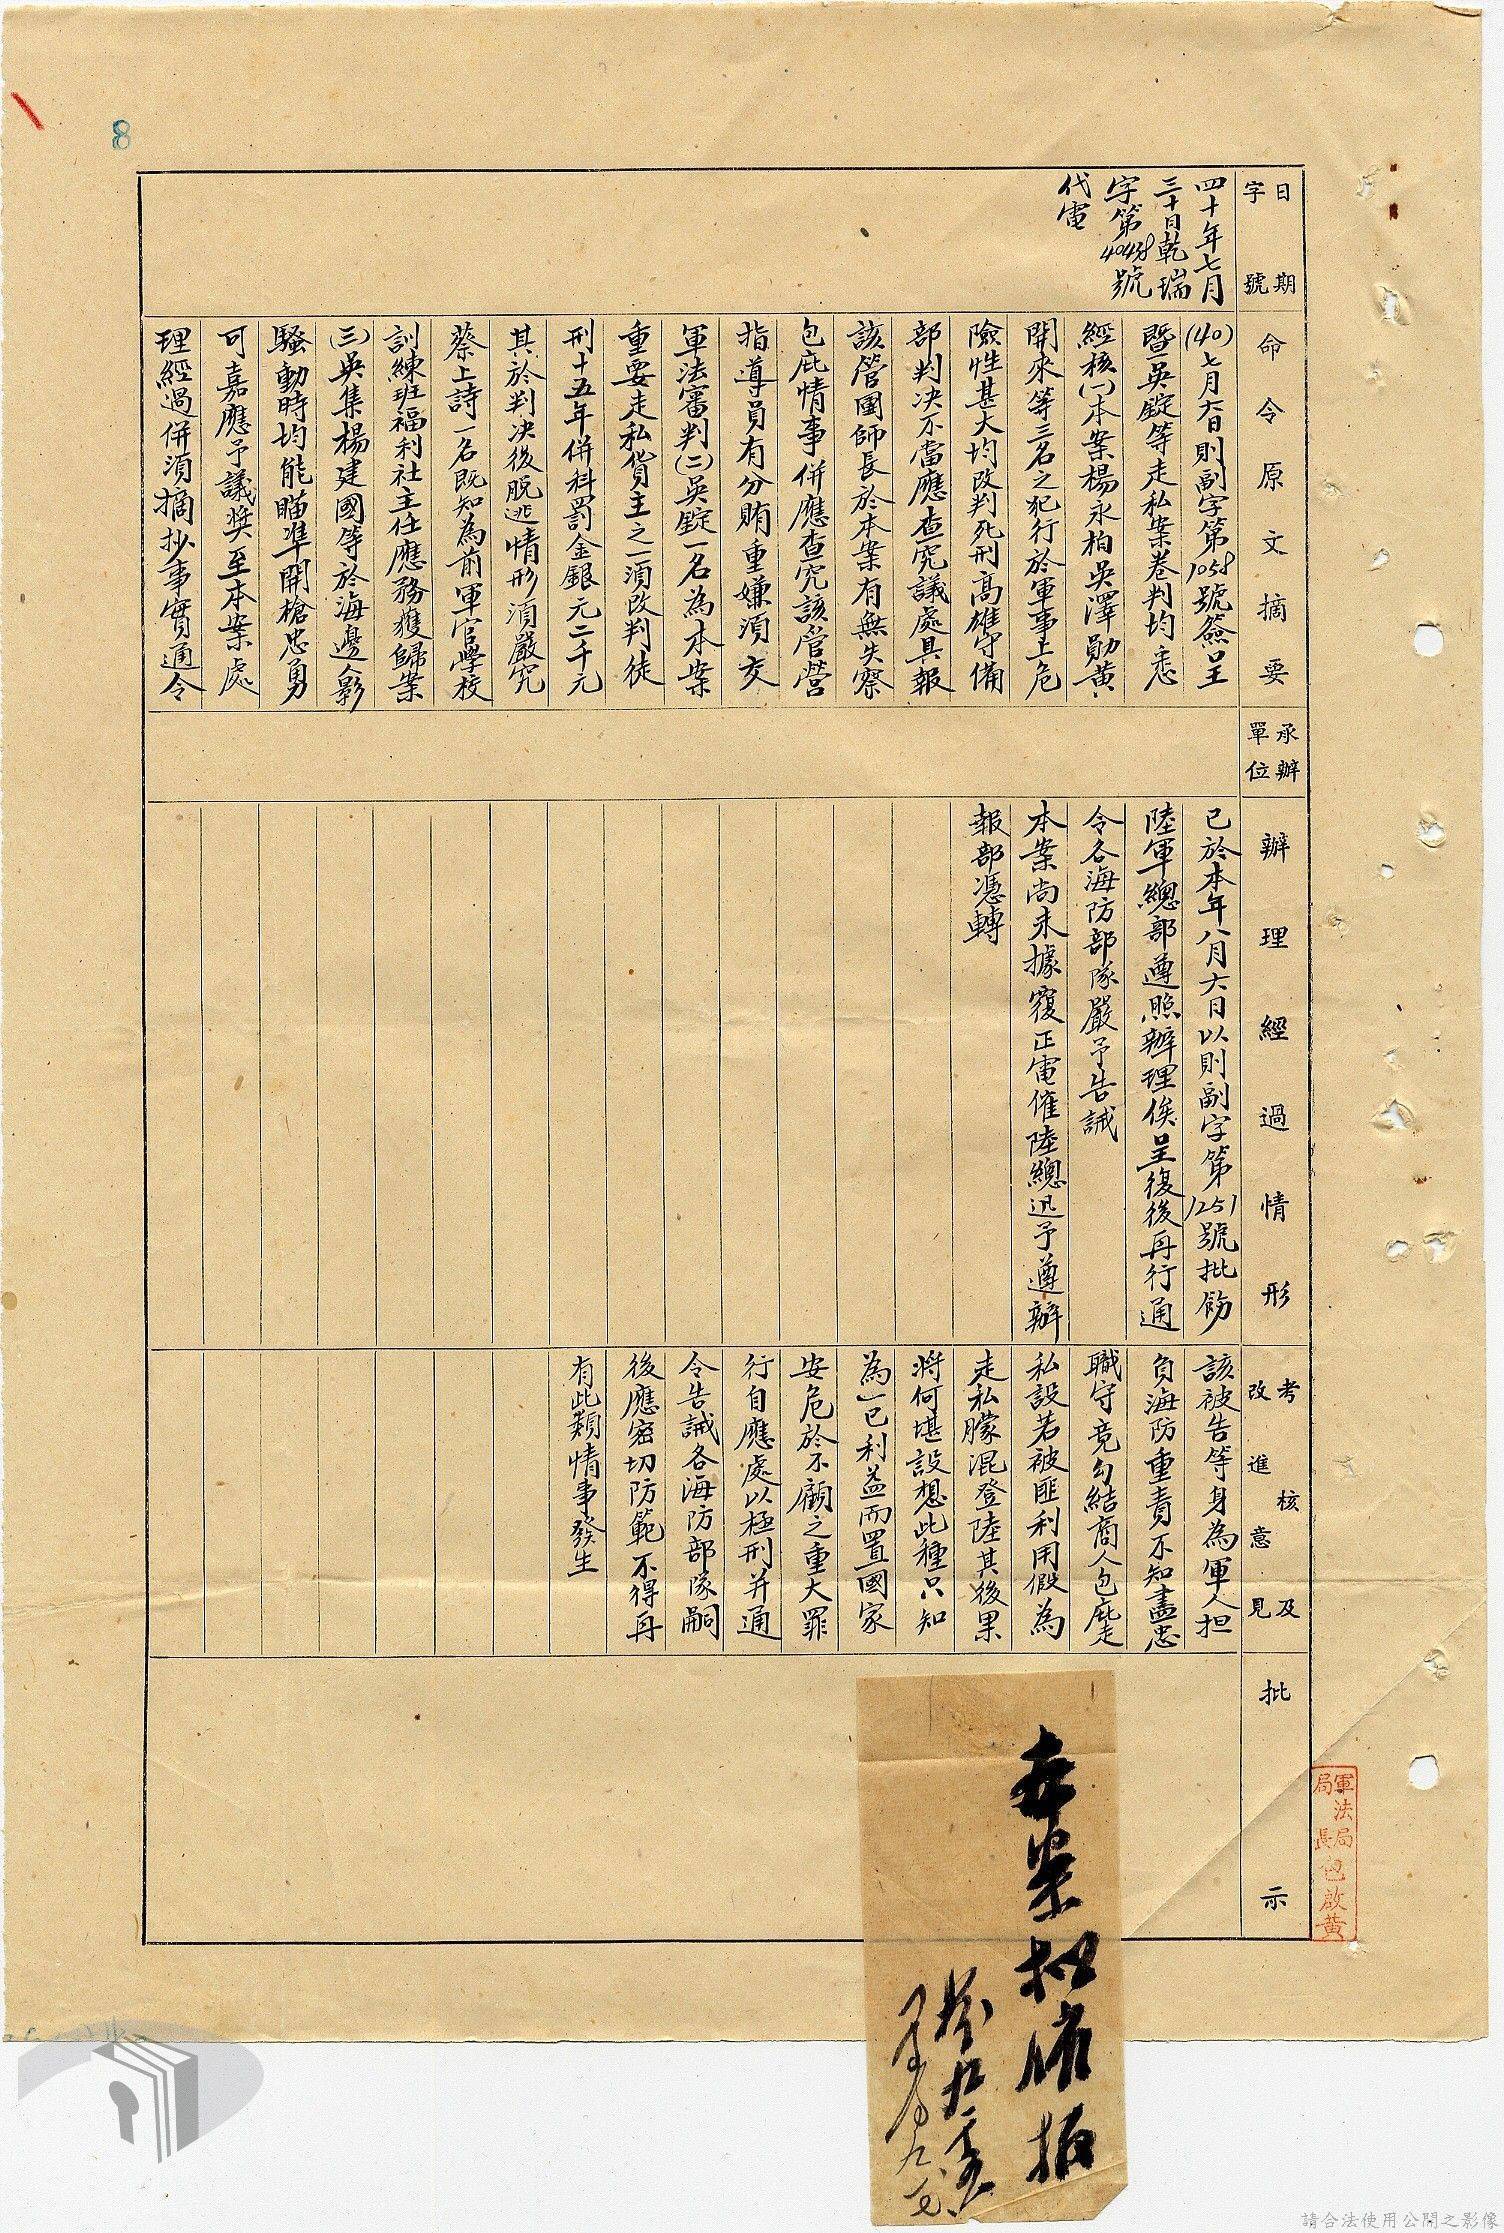 8
日期
字號
四十年七月
三十日乾瑞
字第40438號
代電
命令原文摘要
(40)七月六日則副字第1058號簽呈
暨吳錠等走私案卷判均悉
經核(一)本案楊永柏吳澤勛黃
開來等三名之犯行於軍事上危
險性甚大均改判死刑高雄守備
部判决不當應查究議處具報
該管團師長於本案有無失察
包庇情事併應查究該管營
指導員有分賄重嫌須交
軍法審判(二)吳錠一名為本案
重要走私貨主之一須改判徒
刑十五年併科罰金銀元二千元
其於判决後脫逃情形須嚴究
蔡上詩一名既知為前軍官學校
訓練班福利社主任應務獲歸案
(三)吳集楊建國等於海邊人影
騷動時均能瞄準開槍忠勇
可嘉應予議奖至本案處
理經過併須摘抄事實通令
承辦
單位
辦理經過情形
已於本年八月六日以則副字第1251號批飭
陸軍總部遵照辦理俟呈復後再行通
令各海防部隊嚴予告誡
本案尚未據覆正電催陸總迅予遵辦
報部憑轉
考核及
改進意見
該被告等身為軍人担
負海防重責不知盡忠
職守竟勾結商人包庇走
私設若被匪利用假為
走私朦混登陸其後果
將何堪設想此種只知
為一己利益而置國家
安危於不顧之重大罪
行自應處以極刑并通
令告誡各海防部隊嗣
後應密切防範不得再
有此類情事發生
批示
軍法局
局長包啟黃
請合法使用公開之影像